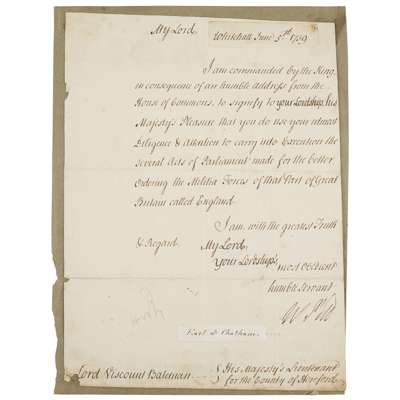 My Lord, Whitehall June 5th 1759
I am commanded by the King,
in consequence of an humble address from the
House of Commons, to signify to your Lordship, his
Majesty's Pleasure that you do use your utmost
Diligence & Attention to carry into Execution the
several Acts of Parliament made for the better
Ordering the Militia Forces of that Part of Great
Britain called England.
I am, with the greatest Truth
& Regard, My Lord,
Your Lordship's
most Obedient
humble Servant
W Pitt
Earl of Chatham.
Lord Viscount Bateman His Majesty's Lieutenant
for the County of Hereford